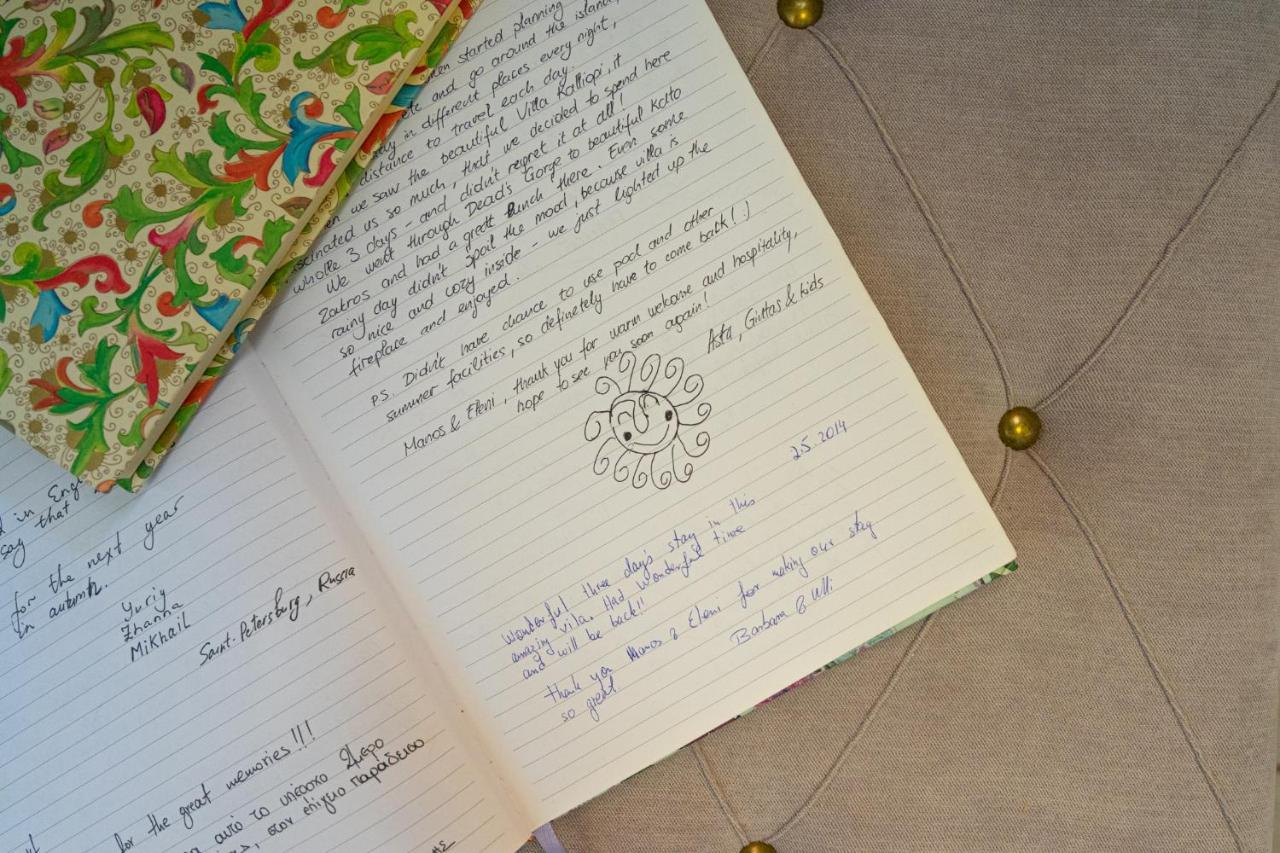 d in Eng
say that
for the next year
in autumn.
Yuriy
Zhanna
Mikhail
Saint-Petersburg, Russia
for the great memories!!!
αυτό το υπέροχο 2ήμερο
στον επίγειο παράδεισο
ης
started planning
ete and go around the island,
stay in different places every night,
distance to travel each day.
en we saw the beautiful Villa Kalliopi, it
fascinated us so much, that we decided to spend here
whole 3 days - and didn't regret it at all!
We went through Dead's Gorge to beautiful Kato
Zakros and had a greatt lunch there. Even some
rainy day didn't spoil the mood, because villa is
so nice and cozy inside - we just lighted up the
fireplace and enjoyed.
P.S. Didn't have chance to use pool and other
summer facilities, so definetely have to come back! :)
Manos & Eleni, thank you for warm welcome and hospitality,
hope to see you soon again!
Asta, Gintas & kids
2.5.2014
Wonderful three day's stay in this
amazing vila. Had wonderful time
and will be back!!
thank you Manos & Eleni for making our stay
so great
Barbara & Ulli